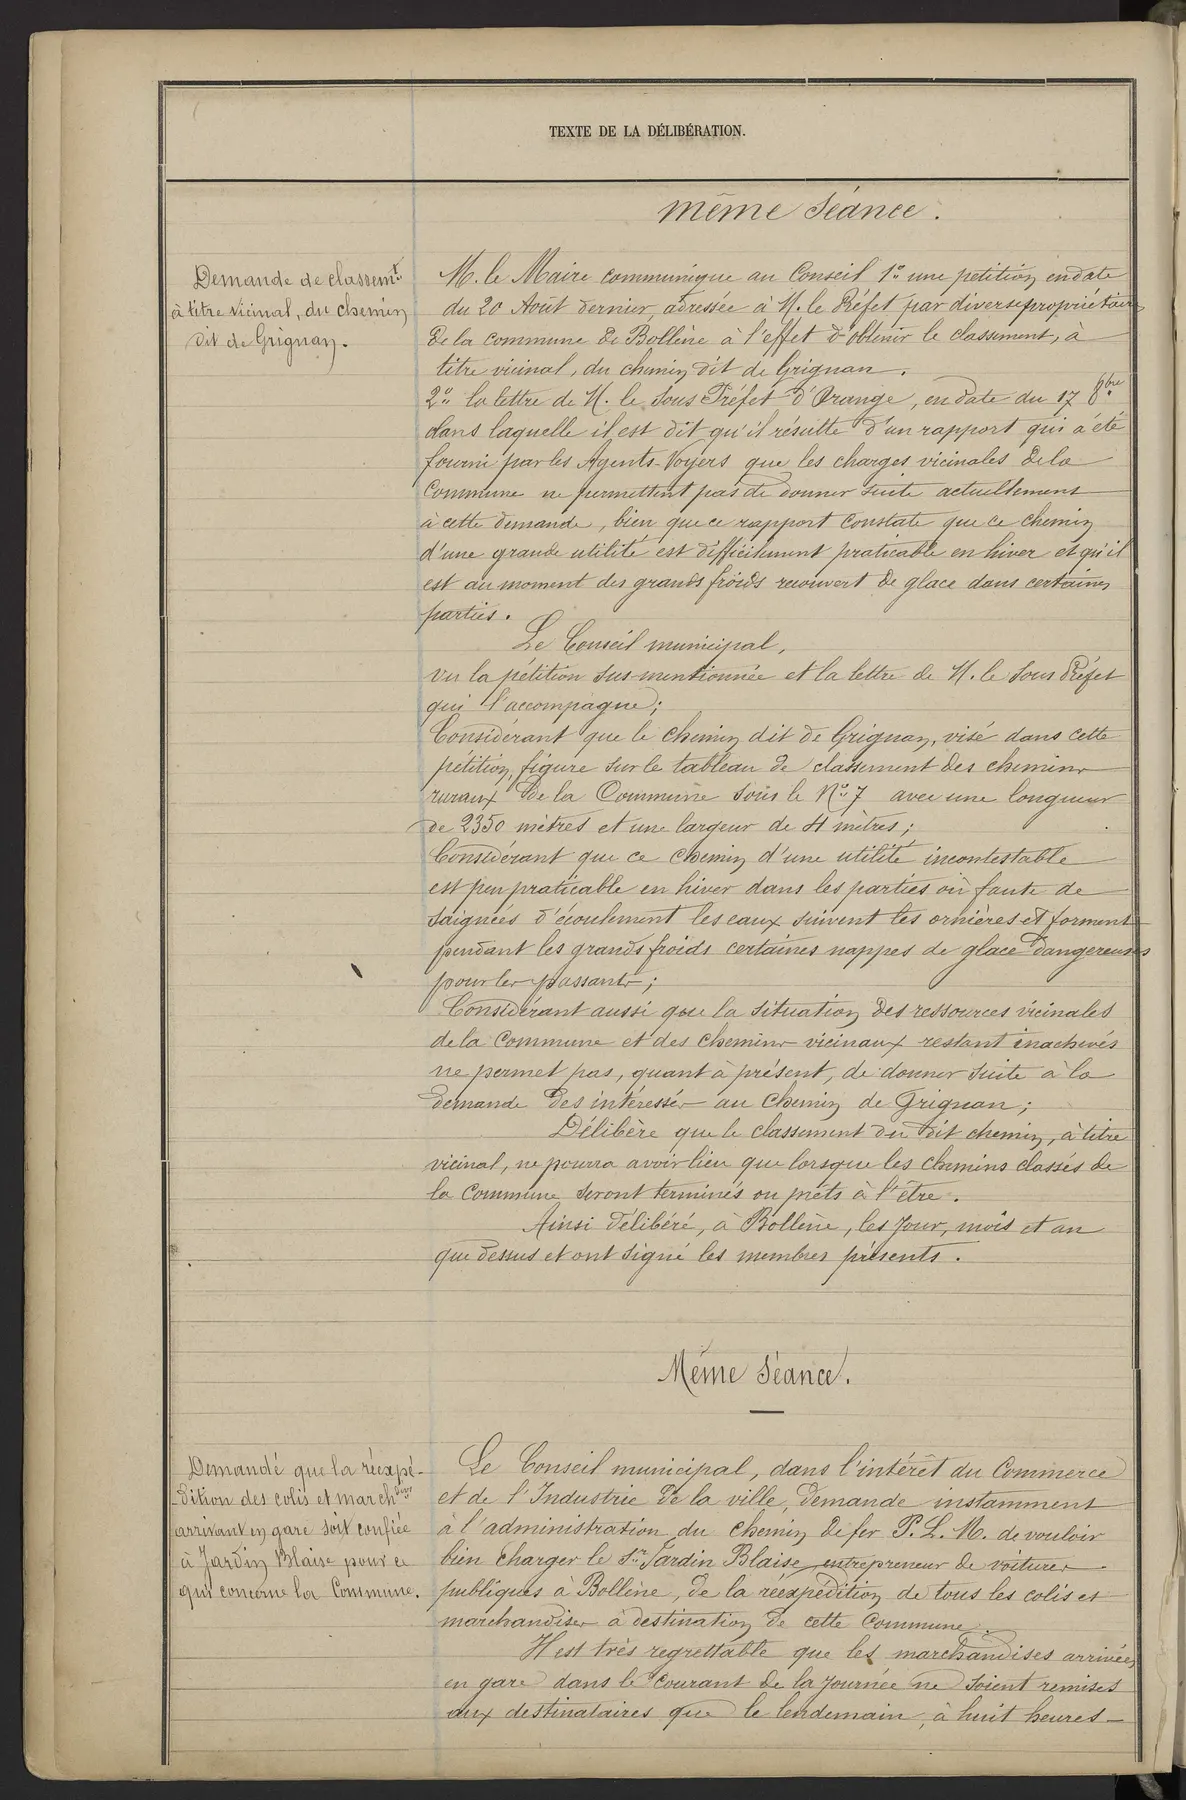 TEXTE DE LA DÉLIBÉRATION.
même séance.
Demande de classemt
à titre vicinal, du chemin
dit de Grignan.
M. le Maire communique au Conseil 1o une pétition en date
du 20 Août dernier, adressée à M. le Préfet par diverses propriétaires
de la commune de Bollène à l'effet d'obtenir le classement, à
titre vicinal, du chemin dit de Grignan.
2o la lettre de M. le Sous Préfet d'Orange, en date du 17 8bre
dans laquelle il est dit qu'il résulte d'un rapport qui a été
fourni par les Agents-Voyers que les charges vicinales de la
Commune ne permettent pas de donner suite actuellement
à cette demande, bien que ce rapport constate que ce chemin
d'une grande utilité est difficilement praticable en hiver et qu'il
est au moment des grands froids recouvert de glace dans certaines
parties.
Le Conseil municipal,
vu la pétition sus-mentionnée et la lettre de M. le Sous Préfet
qui l'accompagne;
Considérant que le chemin dit de Grignan, visé dans cette
pétition, figure sur le tableau de classement des chemins
ruraux de la Commune sous le No 7 avec une longueur
de 2350 mètres et une largeur de 4 mètres;
Considérant que ce chemin d'une utilité incontestable
est peu praticable en hiver dans les parties où faute de
saignées d'écoulement les eaux suivent les ornières et forment
pendant les grands froids certaines nappes de glace dangereuses
pour les passants;
Considérant aussi que la situation des ressources vicinales
de la Commune et des chemins vicinaux restant inachevés
ne permet pas, quant à présent, de donner suite à la
demande des intéressés au chemin de Grignan;
Délibère que le classement du dit chemin, à titre
vicinal, ne pourra avoir lieu que lorsque les chemins classés de
la Commune seront terminés ou prêts à l'être.
Ainsi délibéré, à Bollène, les jour, mois et an
que dessus et ont signé les membres présents.
Même Séance.
Demandé que la réexpé-
dition des colis et marchdises
arrivant en gare soit confiée
à Jardin Blaise pour ce
qui concerne la Commune.
Le Conseil municipal, dans l'intérêt du Commerce
et de l'Industrie de la ville, demande instamment
à l'administration du chemin de fer P. L. M. de vouloir
bien charger le Sr Jardin Blaise, entrepreneur de voitures
publiques à Bollène, de la réexpédition de tous les colis et
marchandises à destination de cette Commune.
Il est très regrettable que les marchandises arrivées
en gare dans le courant de la journée ne soient remises
aux destinataires que le lendemain, à huit heures